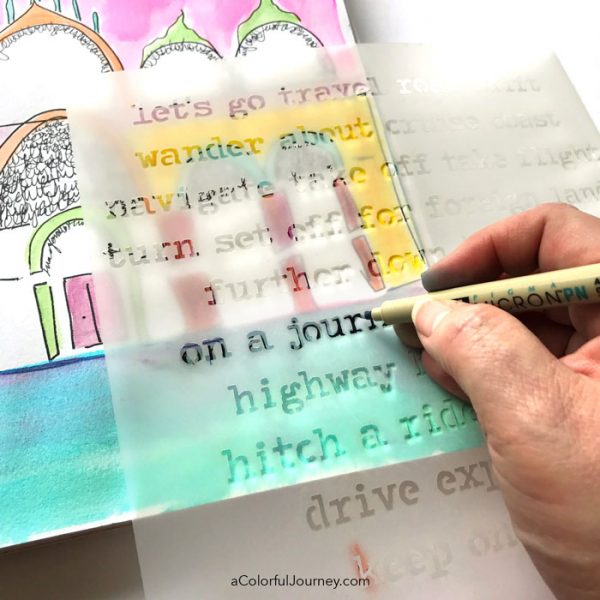 let's go travel
wander about cruise coast
navigate take off take flight
turn set off for foreign land
further down
on a journ
highway
hitch a ride
drive exp
keep on
CRON PN
aColorfulJourney.com